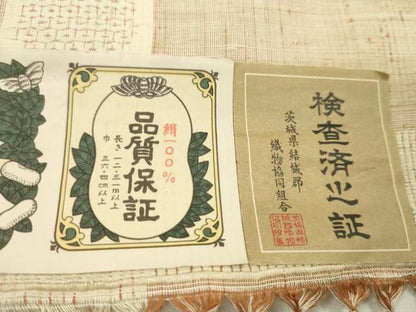 検査済之証
茨城県結城郡
織物協同組合
絹一〇〇%
品質保証
長さ一二・三一m以上
巾三六・四cm以上